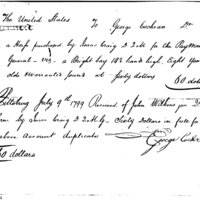 The United States To George Cochran Dr
a Horse purchased by Isaac Craig D.Q.M. for the Paymaster
General - viz - a Bright bay 14½ hands high, Eight Years
old warranted sound at sixty dollars 60 dollars
Pittsburg July 9th 1799 Received of John Wilkins
by Isaac Craig D.Q.M.G. Sixty Dollars in full for
above Account duplicate
George Cochran
60 dollars